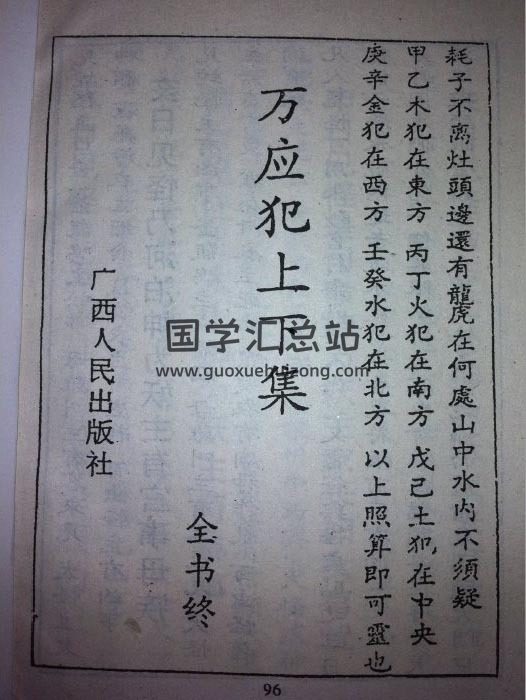 耗子不离灶頭邊還有龍虎在何處山中水内不須疑
甲乙木犯在東方 丙丁火犯在南方 戊己土犯在中央
庚辛金犯在西方 壬癸水犯在北方 以上照算即可靈也
万应犯上下集
全书终
广西人民出版社
国学汇总站
www.guoxuehuizong.com
96